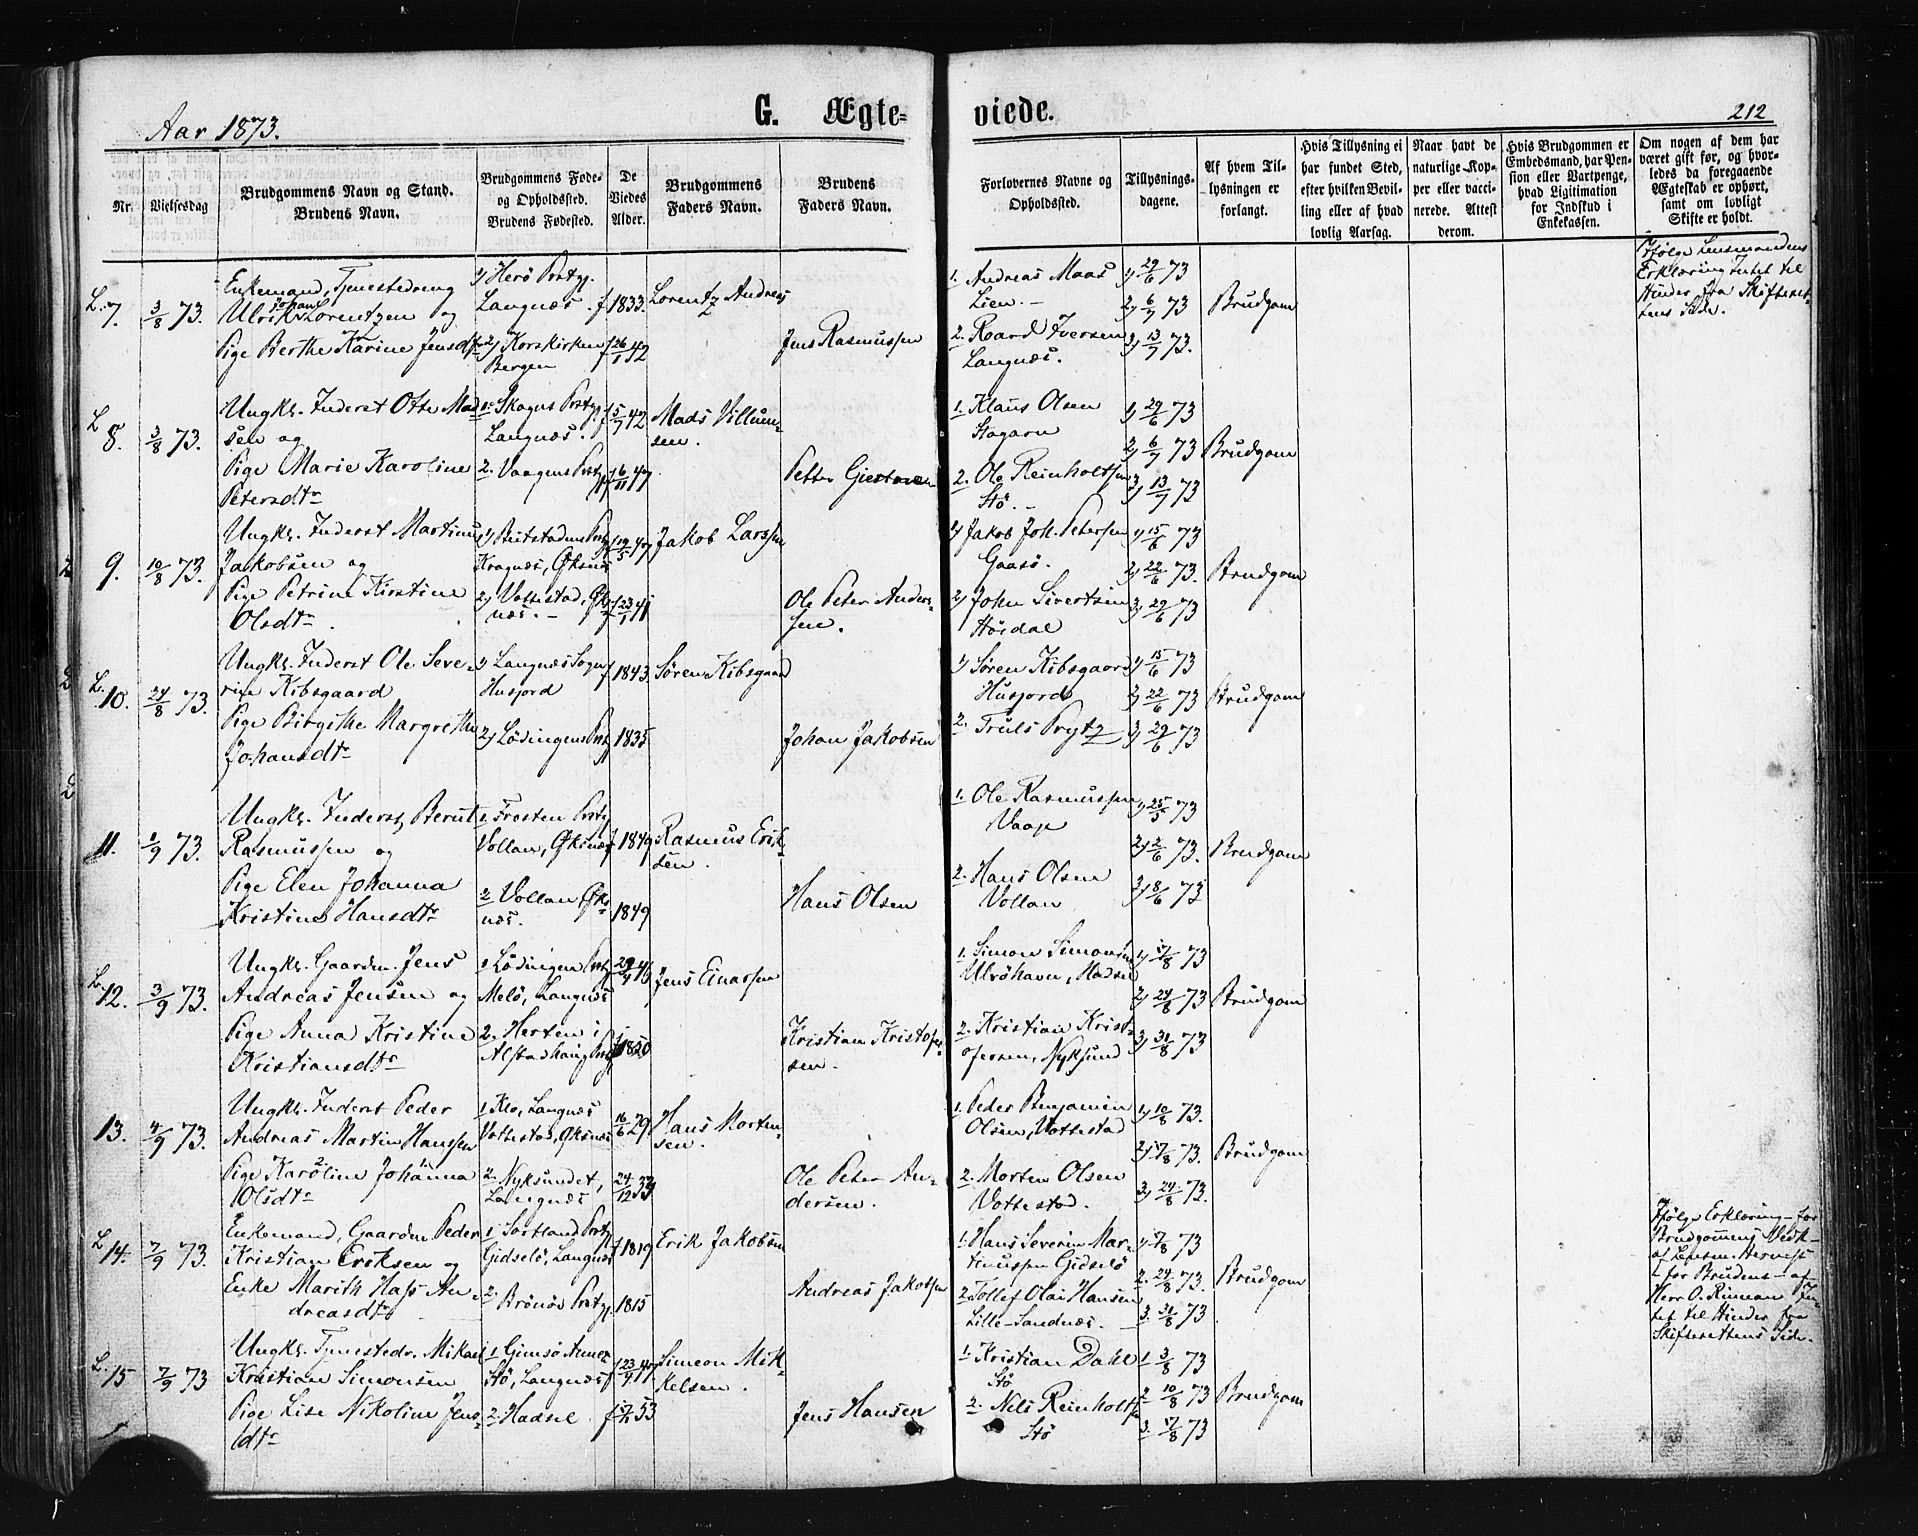 Aar 1873.
G. Ægte-
viede.
212
Nr.
Vielsesdag
Brudgommens Navn og Stand.
Brudens Navn.
Brudgommens Føde-
og Opholdssted.
Brudens Fødested.
De
Viedes
Alder.
Brudgommens
Faders Navn.
Brudens
Faders Navn.
Forlovernes Navne og
Opholdssted.
Tillysnings-
dagene.
Af hvem Til-
lysningen er
forlangt.
Hvis Tillysning ei
har fundet Sted,
efter hvilken Bevil-
ling eller af hvad
lovlig Aarsag.
Naar havt de
naturlige Kop-
per eller vacci-
nerede. Attest
derom.
Hvis Brudgommen er
Embedsmand, har Pen-
sion eller Vartpenge,
hvad Ligitimation
for Indskud i
Enkekassen.
Om nogen af dem har
været gift før, og hvor-
ledes da foregaaende
Ægteskab er ophørt,
samt om lovligt
Skifte er holdt.
L. 7.
3/8 73.
Enkemand, Tjenestedreng
Johan
Ulrik Lorentzen og
Pige Berthe Karine Jensdtr
1) Herö Prstgj.
Langnæs.
2) Korskirken
Bergen
f 1833.
f 26/1 42
Lorentz Andreas
Jens Rasmussen
1. Andreas Maas
Lien. -
2. Roard Iversen
Langnæs.
1) 29/6 73
2) 6/7 73
3) 13/7 73.
Brudgom
Ifølge Lensmandens
Erklæring Intet til
Hinder fra Skifteret-
tens Side.
L 8.
3/8 73.
Ungkl. Inderst Otte Mad
sen og
Pige Marie Karoline
Petersdtr
1. Skogns Prstgj.
Langnæs.
2. Vaagens Prstgj
f 5/7 42
f 6/11 47
Mads Villum-
sen.
Petter Giertsen
1. Klaus Olsen
Skogarn
2. Ole Reinholtsen
Stö. -
1) 29/6 73
2) 6/7 73
3) 13/7 73
Brudgom
9.
10/8 73.
Ungkl. Inderst Martinus
Jakobsen og
Pige Petrine Kirstine
Olsdtr.
1) Beitstadens Prstgj
Kragnæs, Øksnæs
2) Vottestad, Øks-
næs. -
f 19/5 47
f 23/1 41
Jakob Larssen
Ole Peter Anders-
sen.
1) Jakob Joh. Petersen
Gaasö.
2) John Sivertsen
Höidal
1) 15/6 73
2) 22/6 73.
3) 29/6 73
Brudgom
L. 10.
24/8 73.
Ungkl. Inderst Ole Seve-
rin Kibsgaard
Pige Birgithe Margrethe
Johansdtr
1) Langnæs Sogn
Husjord
2) Lödingens Prstgj
f 1843.
1835
Søren Kibsgaard
Johan Jakobsen
1) Søren Kibsgaard
Husjord
2. Truls Prytz
1) 15/6 73
2) 22/6 73
3) 29/6 73
Brudgom
11.
1/9 73.
Ungkl. Inderst Bernt
Rasmussen og
Pige Elen Johanna
Kristine Hansdtr
1. Frosten Prstgj
Vollan, Øksnæs
2. Vollan Øks-
næs.
f 1849.
1849
Rasmus Erik-
sen.
Hans Olsen
1. Ole Rasmussen
Vaaje
2. Hans Olsen
Vollan
1) 25/5 73
2) 2/6 73.
3) 8/6 73
Brudgom
L. 12.
3/9 73.
Ungkl. Gaardm. Jens
Andreas Jensen og
Pige Anna Kristine
Kristiansdtr
1 Lödingen Prstgj
Melö, Langnæs
2. Herten i
Alstadhaug Prstgj
29/4 46
f 1850
Jens Einarsen
Kristian Kristofer-
sen.
1. Simon Simonsen
Ulvöhavn, Hadsel
2. Kristian Krist-
ofersen, Nyksund
1) 17/8 73
2) 24/8 73
3) 31/8 73
Brudgom
13.
4/9 73.
Ungkl. Inderst Peder
Andreas Martin Hanssen
Pige Karoline Johanna
Olsdtr
1. Klo, Langnæs
Vottestad, Øksnæs
2. Nyksundet,
Langnæs
16/6 29
24/12 33
Hans Morten-
sen.
Ole Peter An-
dersen.
1. Peder Benjamin
Olsen, Vottestad
2. Morten Olsen
Vottestad.
1) 10/8 73.
2) 17/8 73.
3) 24/8 73.
Brudgom
L. 14.
7/9 73.
Enkemand, Gaardm Peder
Kristian Eriksen og
Enke Marith Hass An-
dreasdtr
1. Sortland Prstgj
Gidselö, Langnæs
2. Brönös Prstgj.
f 1819
1815
Erik Jakobsen
Andreas Jakobsen
1. Hans Severin Mar-
thinussen Gidselö
2. Tollef Olai Hansen
Lille-Sandnæs.
1. 17/8 73
2. 24/8 73.
3. 31/8 73
Brudgom
Ifølge Erklæring - for
Brudgommens Vedk-
af Lensm.
- for Brudens - af
Herr O. Rinman In-
tet til Hinder fra
Skifterettens Side.
L. 15
7/9 73
Ungkl. Tjenestedr. Mikael
Kristian Simonsen
Pige Lise Nikoline Jens-
dtr
1 Gimsö Annex
Stö, Langnæs
2. Hadsel
f 23/9 47
53
Simeon Mik-
kelsen.
Jens Hansen
1. Kristian Dahl
Stö
2. Nils Reinholts
Stö
1 3/8 73
2. 10/8 73
3. 17/8 73
Brudgom